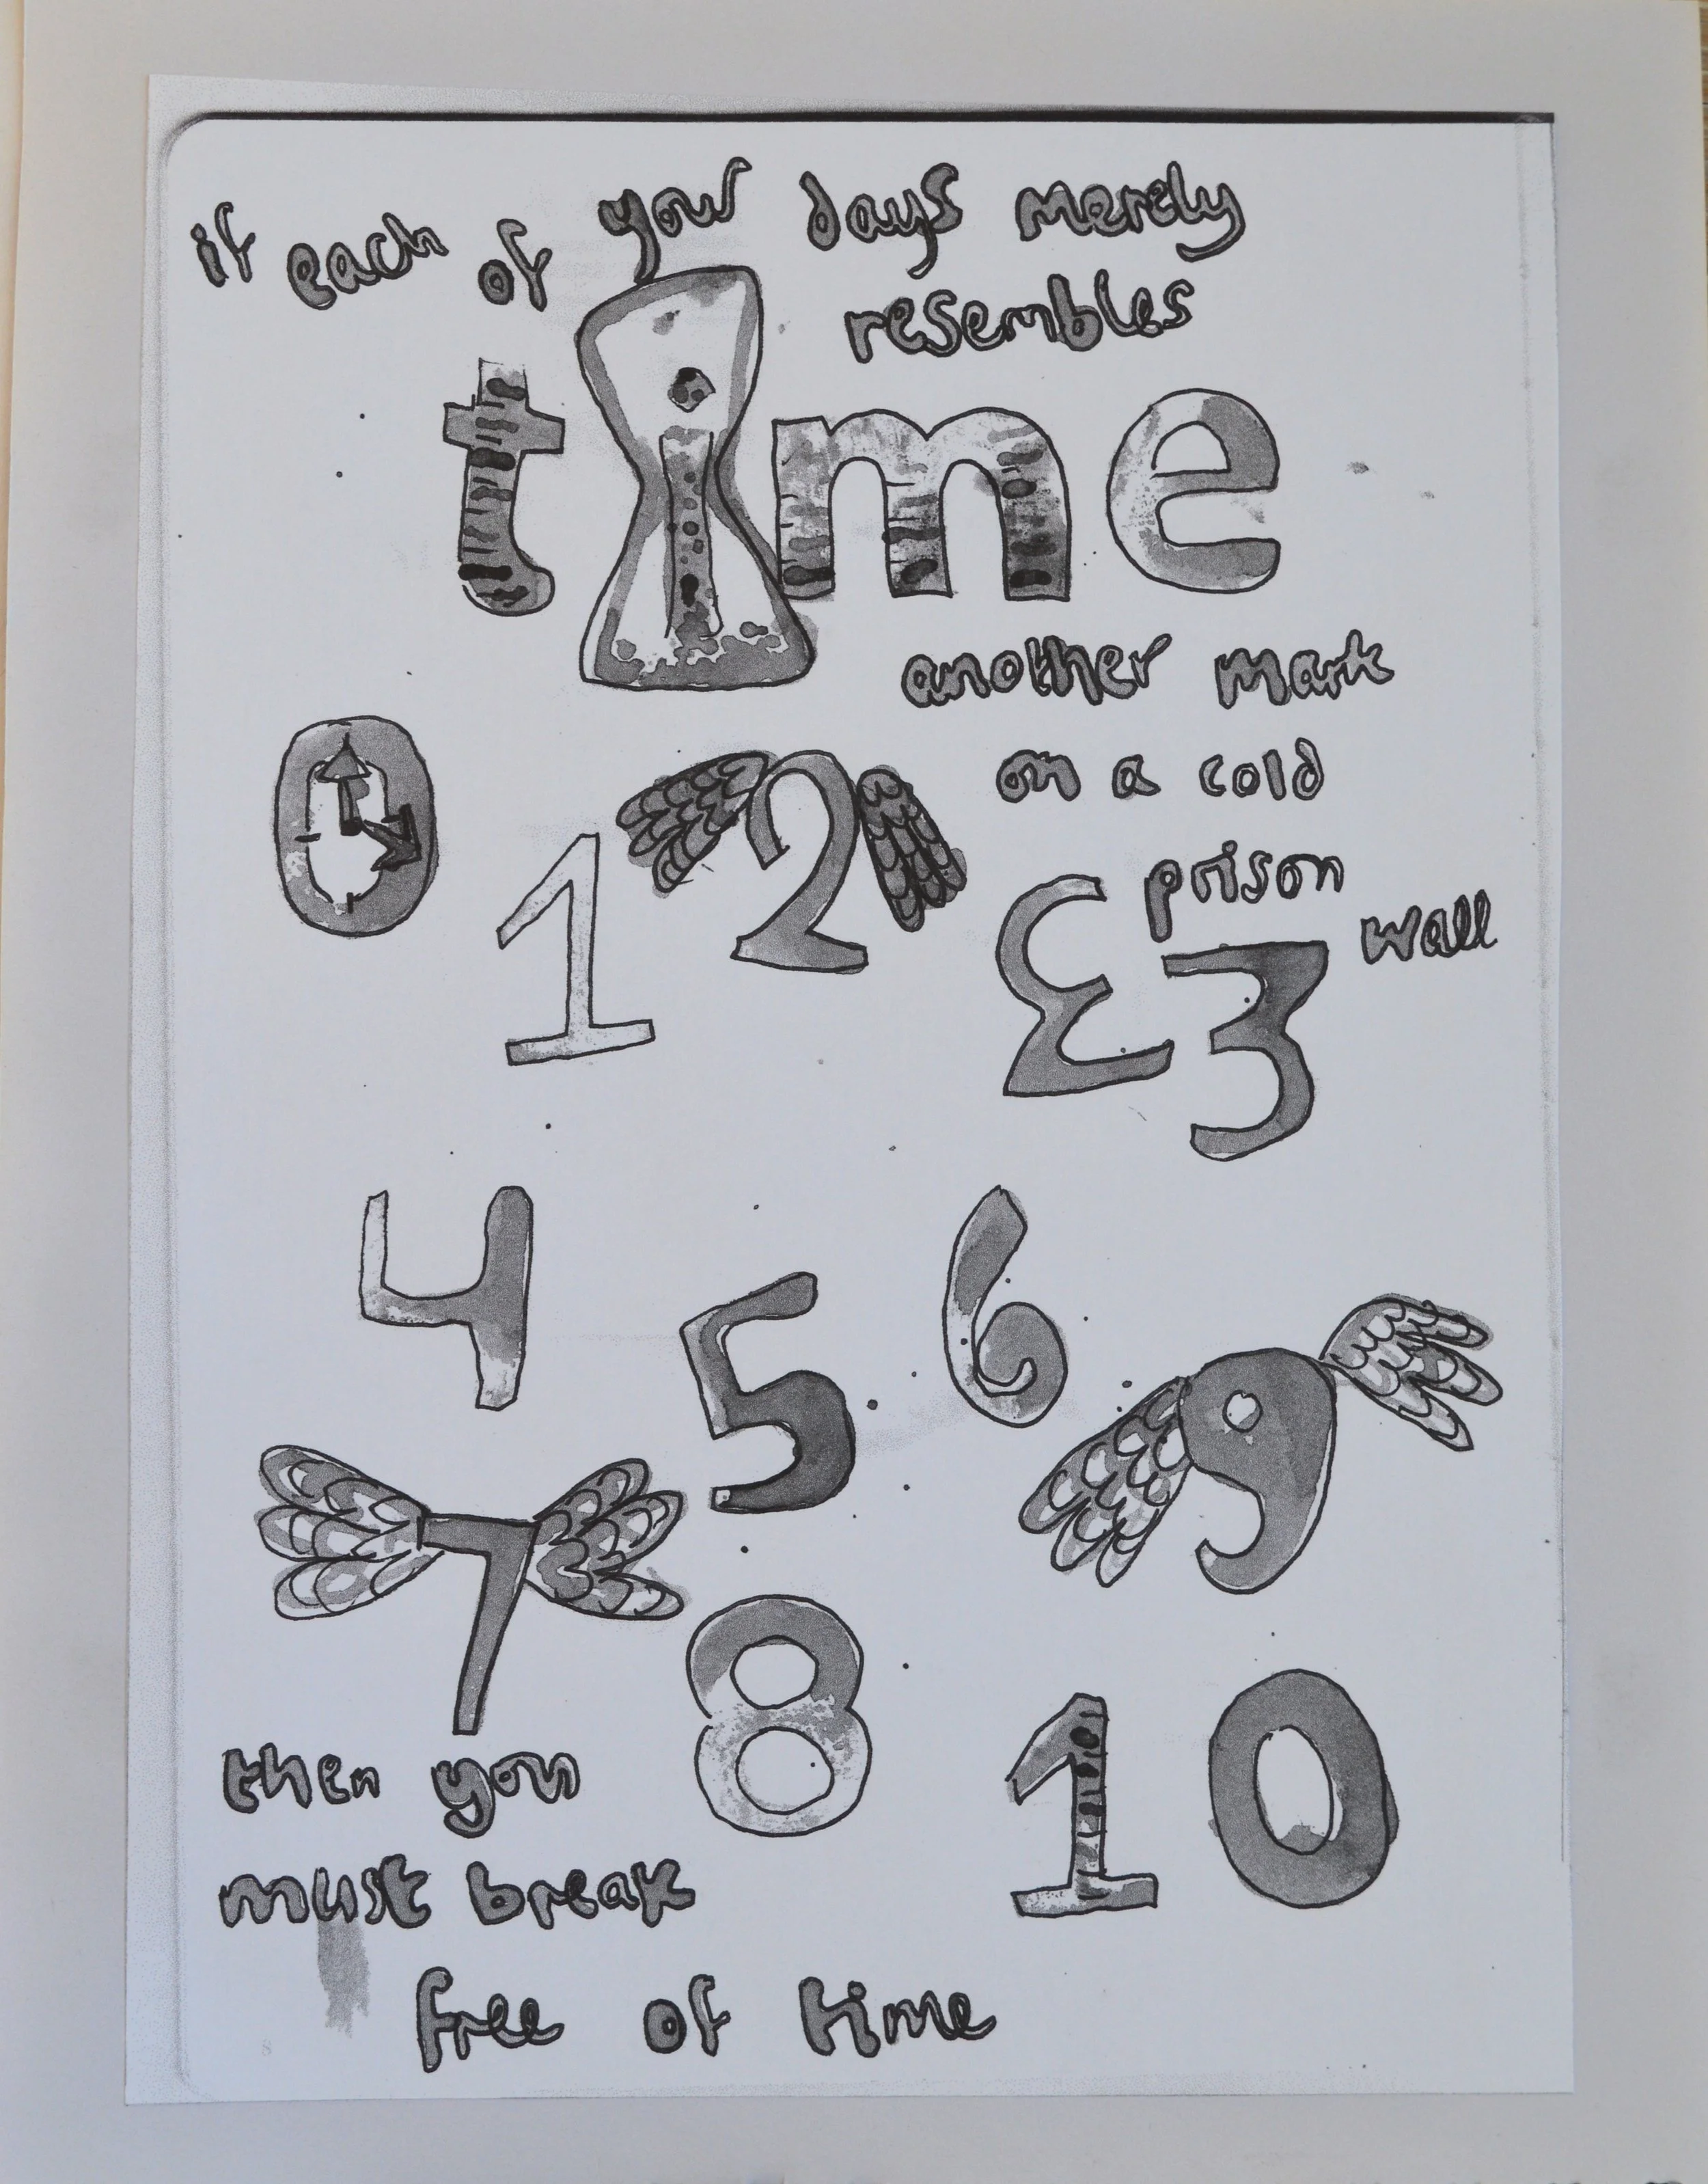 if each of your days merely
resembles
time
another mark
on a cold
prison
wall
0 1 2 Ɛ3
4 5 6
7 8 9
10
then you
must break
free of time
8